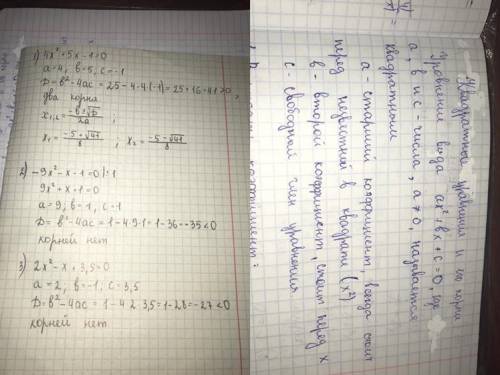 1) 4x²+5x-1=0
a=4; в=5, c=-1
D=в²-4ac=25-4·4·(-1)=25+16=41>0,
два корня
x₁,₂=-в±√D/2a;
x₁=-5+√41/8, x₂=-5-√41/8
2) -9x²-x-1=0|·1
9x²+x+1=0
a=9; в=1, c=1
D=в²-4ac=1-4·9·1=1-36=-35<0
корней нет
3) 2x²-x+3,5=0
a=2; в=-1, c=3,5
D=в²-4ac=1-4·2·3,5=1-28=-27<0
корней нет
Квадратный уравнения и его корни
Уровнение вида ax²+вx+c=0, где
a, в и c-числа, a≠0, называется
квадратным
a-старший коэффициент, всегда стоит
перед неизвестной в квадрате (x²)
в-второй коэффициент, стоит перед x
c-свободной член уравнения